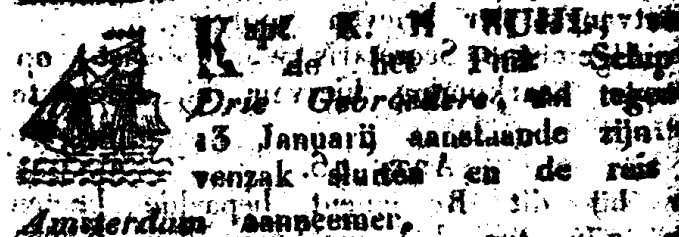 Kapt. K. H
de het Pink Schip
Drie Gebroeders,
13 Januarij aanstaande zijn
venzak sluiten en de reis
Amsterdam aanneemen.